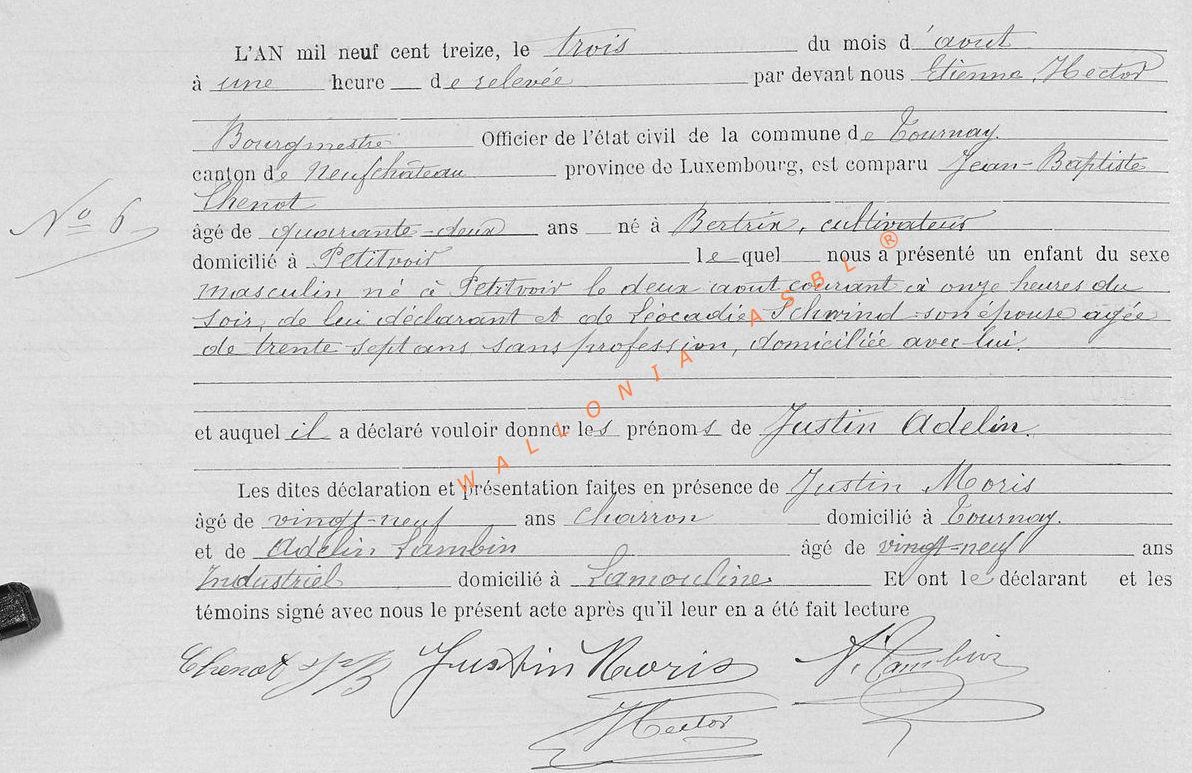 L'AN mil neuf cent treize, le trois du mois d'aout
à une heure de relevée par devant nous Etienne Hector
Bourgmestre Officier de l'état civil de la commune de Tournay.
canton de Neufchâteau province de Luxembourg, est comparu Jean-Baptiste
Chenot
No 6
âgé de quarante-deux ans né à Bertrix, cultivateur
domicilié à Petitvoir lequel nous a présenté un enfant du sexe
masculin né à Petitvoir le deux aout courant à onze heures du
soir, de lui déclarant et de Léocadie Schwind son épouse agée
de trente-sept ans sans profession, domiciliée avec lui.
et auquel il a déclaré vouloir donner les prénoms de Justin Adelin.
WALLONIA ASBL ®
Les dites déclaration et présentation faites en présence de Justin Moris
âgé de vingt-neuf ans charron domicilié à Tournay.
et de Adelin Lambin âgé de vingt-neuf ans
Industriel domicilié à Lamouline Et ont le déclarant et les
témoins signé avec nous le présent acte après qu'il leur en a été fait lecture
Chenot J B Justin Moris A. Lambin
Hector